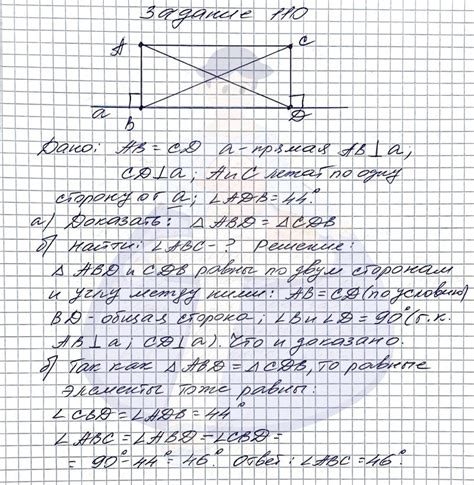 Задание 110
A C
a B D
Дано: AB = CD a - прямая AB ⊥ a,
CD ⊥ a; A и C лежат по одну
сторону от a; ∠ADB = 44°
а) Доказать: △ ABD = △ CDB
б) Найти: ∠ABC - ? Решение:
△ ABD и CDB равны по двум сторонам
и углу между ними: AB = CD (по условию)
BD - общая сторона; ∠B и ∠D = 90° (т.к.
AB ⊥ a; CD ⊥ a). Что и доказано.
б) Так как △ ABD = △ CDB, то равные
элементы тоже равны:
∠CBD = ∠ADB = 44°
∠ABC = ∠ABD = ∠CBD =
= 90° - 44° = 46°. Ответ: ∠ABC = 46°.